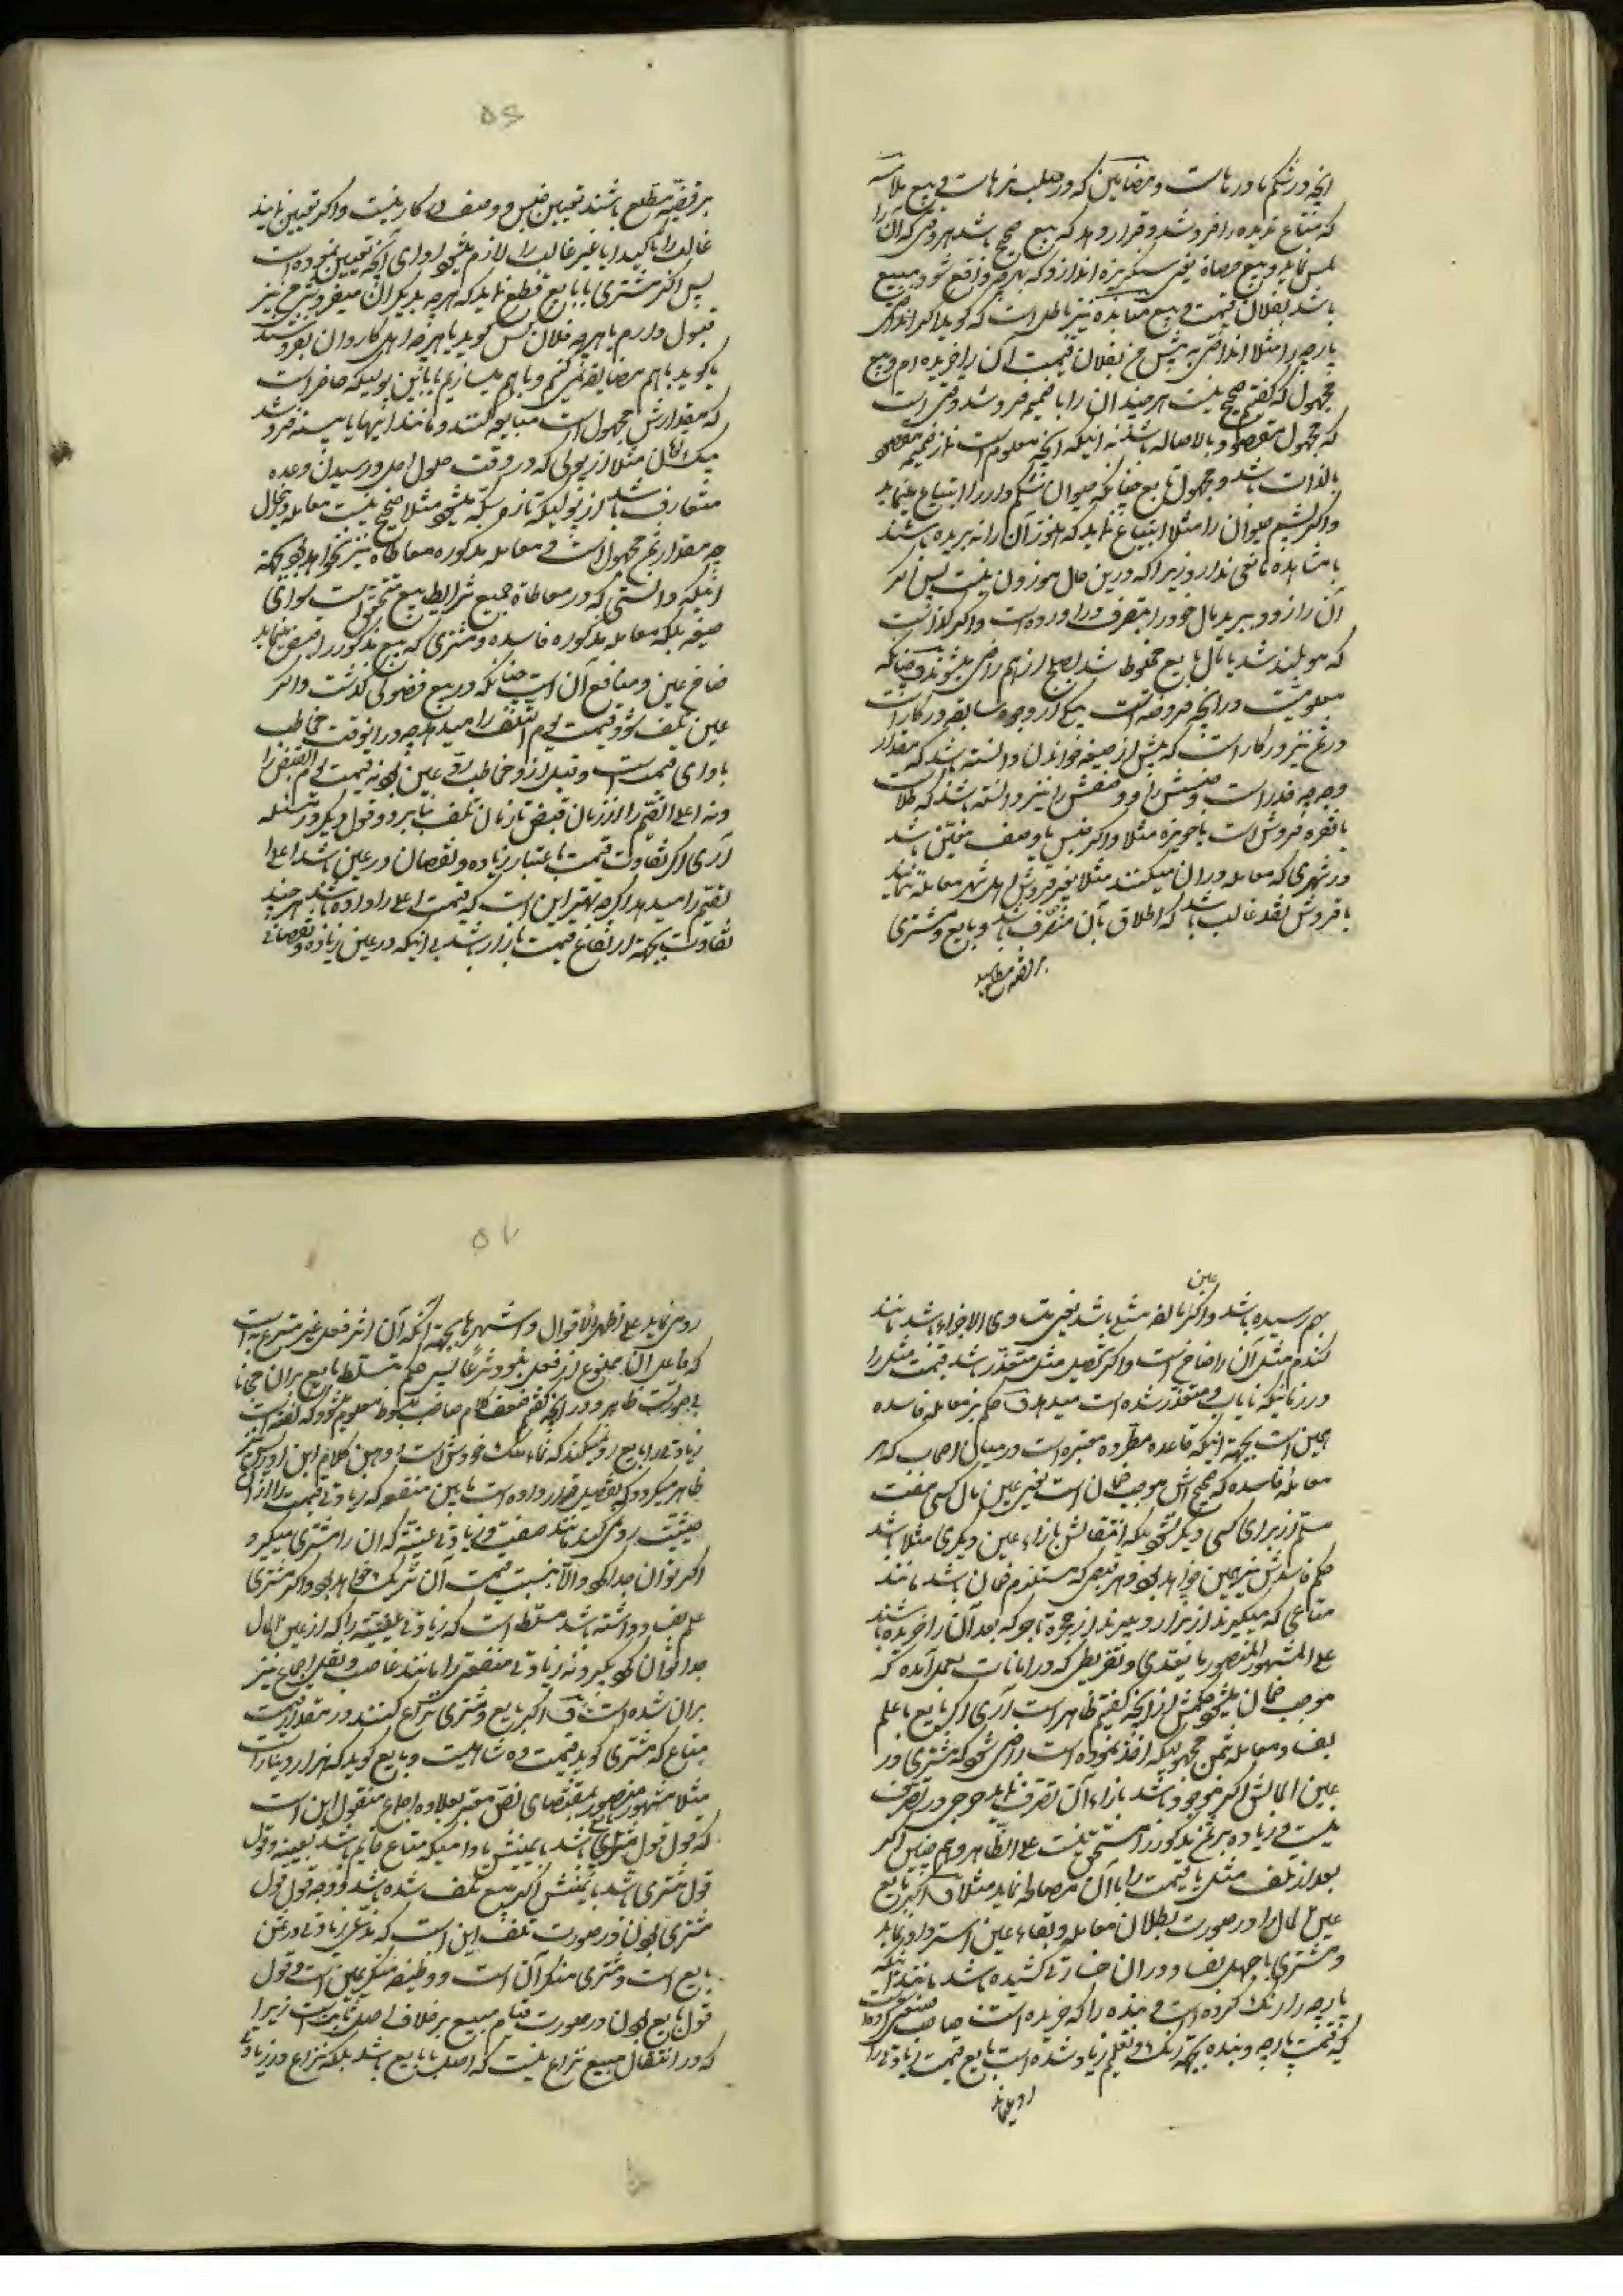 آنچه در شکم مادرهاست و مضامین که در صلب نرهاست و بیع ملامسه
که متاع ندیده را فروشد و قرار دهد که بیع صحیح باشد هر وقتی که آن را
لمس نماید و بیع حصاة یعنی سنگریزه اندازد که بهر چه واقع شود مبیع
باشد بفلان قیمت و بیع منابذه نیز باطل است که گوید اگر انداختی
پارچه را مثلا انداختی به پیش من بفلان قیمت آن را خریده ام و بیع
مجهول که گفتیم صحیح نیست هر چند آن را با ضمیمه فروشد وقتی است
که مجهول مقصود بالاصاله باشد نه اینکه آنچه معلوم است از ضمیمه مقصود
بالذات باشد و مجهول تابع چنانکه حیوان شکم دار را ابتیاع نماید
و اگر پشم حیوان را مثلا ابتیاع نماید که هنوز آن را نه بریده باشند
با مشاهده مانعی ندارد زیرا که درین حال موزون نیست پس اگر
آن را زود ببرید مال خود را بتصرف درآورده است و اگر گذاشت
که مو بلند شد با مال بایع مخلوط شد بصلح از هم راضی میشوند و چنانکه
معلومیت در آنچه فروخته است بیکی از وجوه سابقه در کار است
در ثمن نیز در کار است که پیش از صیغه خواندن دانسته باشد که مقدار
وجه چه قدر است و جنسش را و وصفش را نیز دانسته باشد که طلاست
یا نقره فروش است یا حویزه مثلا و اگر جنس یا وصف معین باشد
در شهری که معامله در آن میکنند مثلا بغیر قروش اهل شهر معامله ننمایند
یا قروش نقد غالب باشد که اطلاق بآن منصرف باشد و بایع و مشتری
بر قضیه مطلع باشند
۵۶
بر قضیه مطلع باشند تعیین جنس و وصف در کار نیست و اگر تعیین نمایند
غالب را تأکیدا یا غیر غالب را لازم میشود سوای آنچه تعیین نموده است
پس اگر مشتری با بایع قطع نماید که هر چه بدیگران میفروشی من نیز
قبول دارم یا هر چه فلان کس گوید یا هر چه اهل کاروان بفروشند
یا گوید با هم مضایقه نمی کنیم و با هم میسازیم یا باین پولیکه حاضر است
که مقدارش مجهول است مبایعه کنند و مانند اینها یا نسیه فروشد
مثلا از پولی که در وقت حلول اجل و رسیدن وعده
متعارف باشد از پولیکه تازه سکه میشود مثلا صحیح نیست معامله
چه مقدار ثمن مجهول است و معامله مذکوره معاطاة نیز نخواهد بود بجهة
اینکه دانستی که در معاطاة جمیع شرایط بیع متحقق است سوای
صیغه بلکه معامله مذکوره فاسده و مشتری که مبیع مذکور را قبض مینماید
ضامن عین و منافع آن است چنانکه در بیع فضولی گذشت و اگر
عین تلف شود قیمت یوم التلف را میدهد چه در آنوقت مخاطب
بادای قیمت است و قبل از و مخاطب برد عین بود نه قیمت یوم القبض را
و نه اعلی القیم را از زمان قبض تا زمان تلف بنابر دو قول دیگر در مسئله
آری اگر تفاوت قیمت باعتبار زیاده و نقصان در عین باشد اعلا
لقیم را میدهد اگر چه بهتر این است که قیمت اعلی را داده باشد هر چند
تفاوت بجهة ارتفاع قیمت بازار باشد بی اینکه در عین زیاده و نقصانی
عین
بهم رسیده باشد و اگر تالف مثلی باشد یعنی متساوی الاجزاء باشد مانند
گندم مثل آن را ضامن است و اگر تحصیل مثل متعذر باشد قیمت مثل را
در زمانیکه نایاب و متعذر شده است میدهد و حکم هر معامله فاسده
همین است بجهة اینکه قاعده مطرده معتبره است در میان اصحاب که هر
معامله فاسده که صحیح آتش موجب ضمان است یعنی عین مال کسی مفت
مسلم از برای کسی دیگر نشود بلکه انتقالش بازاء عین دیگری مثلا باشد
حکم فاسدش نیز همین خواهد بود و هر قبض که مستلزم ضمان باشد مانند
متاعی که میگیرند از بزاز و میبرند از حجره تا جو که بعد آن را خریده باشند
علی المشهور المنصور یا بتعدی و تفریطی که در امانات بعمل آمده که
موجب ضمان میشود حکمش از آنچه گفتیم ظاهر است آری اگر بایع با علم
بفساد معامله ثمن مجهولیکه اخذ نموده است راضی شود که مشتری در
عین المالش اگر موجود باشد بازاء آن تصرف نماید حرجی در تصرف
نیست و زیاده بر ثمن مذکور را مستحق نیست علی الظاهر و هم چنین اگر
بعد از تلف مثل یا قیمت را با آن مصالحه نماید مثلا ف اگر بایع
عین المال را در صورت بطلان معامله و بقاء عین استرداد نماید
و مشتری با جهل بفساد در آن خسارتی کشیده باشد مانند اینکه
پارچه را رنگ کرده است و بنده را که خریده است صاحب صنعتی کرده است
که قیمت پارچه و بنده بجهة رنگ و تعلیم زیاد شده است بایع قیمت زیادتی را
رد مینماید
۵۷
رد می نماید علی اظهر الاقوال و اشهرها بجهة آنکه آن اثر فعل غیر متبرع به است
که فاعل آن ممنوع از فعل نبود شرعا پس حکم بتسلط بایع بر آن مجانا
بی صورت ظاهر و در آنچه گفتیم ضعف کلام صاحب مبسوط معلوم میشود که گفته است
زیادتی را بایع رد نمیکند که نماء ملک خودش است و همین کلام ابن ادریس
ظاهر میگردد که تفصیل قرار داده است مابین منفعة که زیادتی قیمت را از آن
حیثیت رد می کند مانند صنعت و زیادتی عینیه که آن را مشتری میگیرد
اگر توان جدا کرد والا بنسبت قیمت آن شریک خواهد بود و اگر مشتری
علم بفساد داشته باشد مسلط است که زیادتی عینیه را که از عین المال
جدا توان کرد بگیرد نه زیادتی منفعتی را مانند غاصب و نقل اجماع نیز
بر آن شده است ف اگر بایع و مشتری نزاع کنند در مقدار قیمت
متاع که مشتری گوید قیمت ده شاهیست و بایع گوید که هزار دینار است
مثلا مشهور منصور بمقتضای نص معتبر بعلاوه اجماع منقول این است
که قول قول بایع باشد با یمینش مادامیکه متاع قایم باشد بعینه و قول
قول مشتری باشد با یمینش اگر مبیع تلف شده باشد و وجه قول قول
مشتری بودن در صورت تلف این است که مدعی زیادتی در ثمن
بایع است و مشتری منکر آن است و وظیفه منکر یمین است و قول
قول بایع بودن در صورت قیام مبیع بر خلاف اصل ثابت است زیرا
که در انتقال مبیع نزاع نیست که اصل با بایع باشد بلکه نزاع در زیادتی